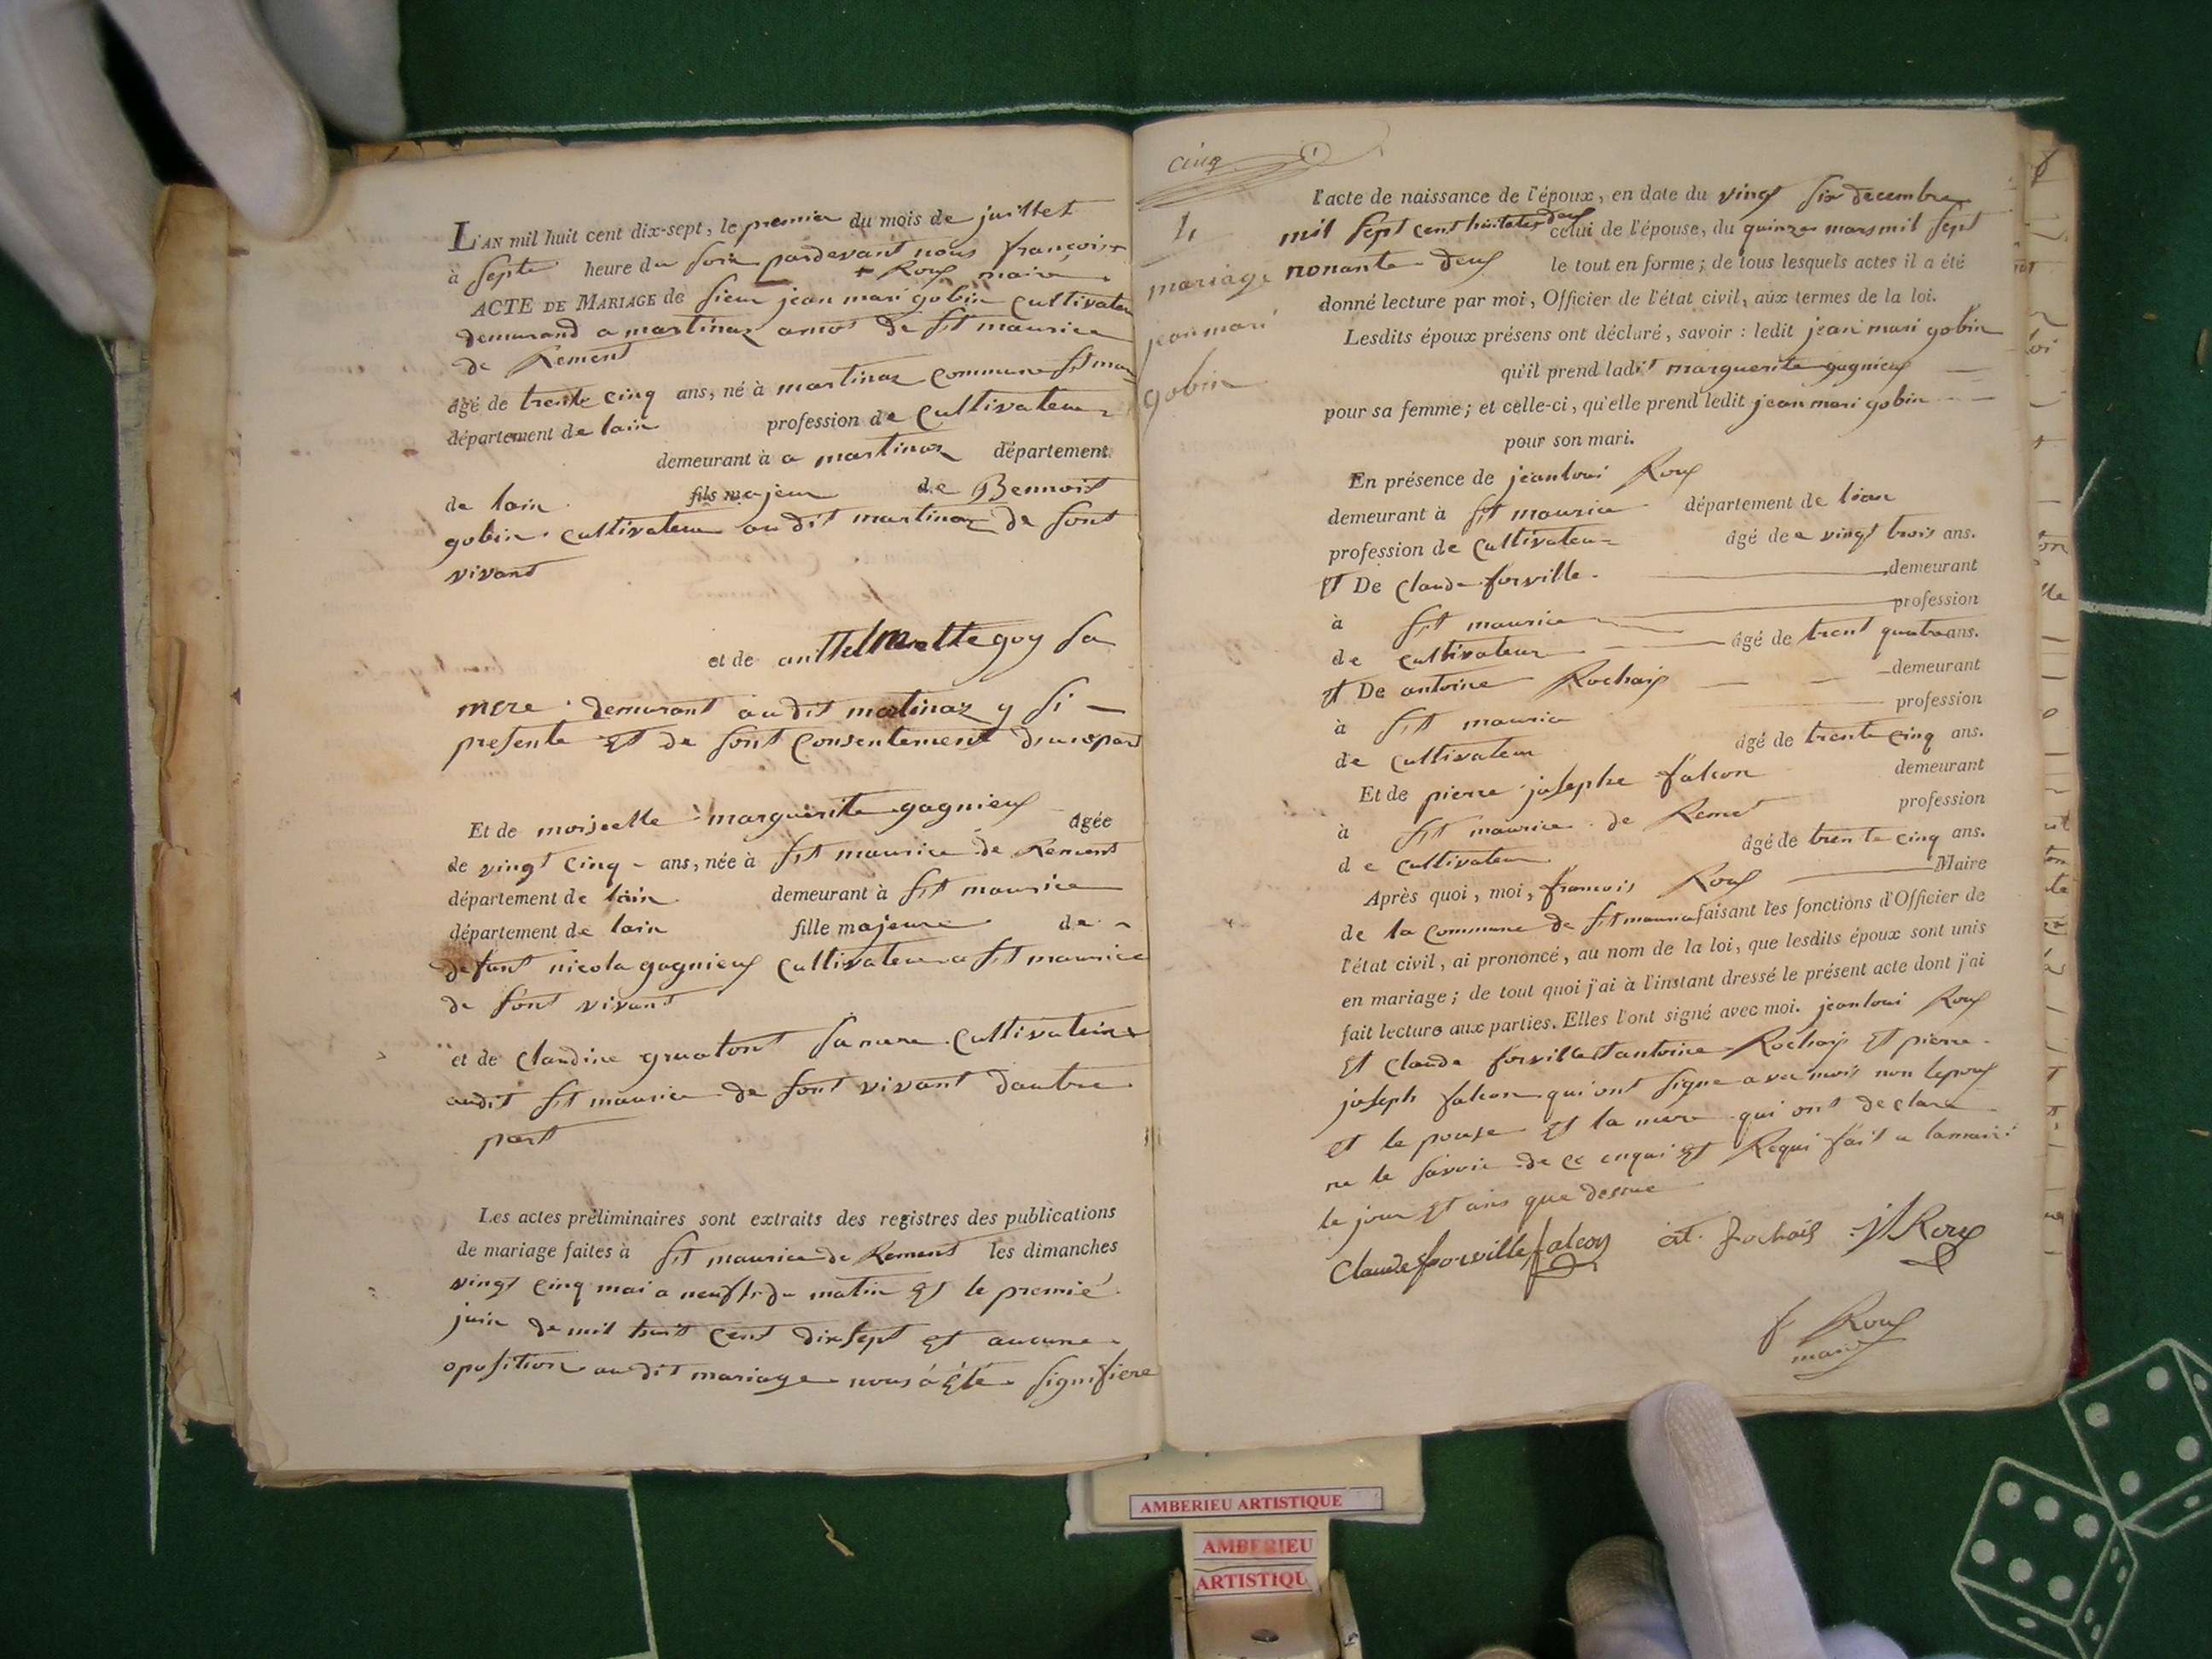 L'AN mil huit cent dix-sept, le premier du mois de juillet
à septe heure du soir pardevant nous françois
+ Roux maire
ACTE DE MARIAGE de sieur jean mari gobin cultivateur
demurand a martinaz amos de st maurice
de Rement
âgé de trente cinq ans, né à martinaz commune st mau
département de lain profession de cultivateur
demeurant à a martinaz département
de lain fils majeur de Bennoit
gobin cultivateur audit martinaz de sont
vivant
et de goy sa
mere demurant audit martinaz y si
presente Et de sont consentement dune part
Et de moiselle marguerite gagnieux âgée
de vingt cinq ans, née à st maurice de Rement
département de lain demeurant à st maurice
département de lain fille majeure de
defunt nicola gagnieux cultivateur a st maurice
de sont vivant
et de claudine gruatont sa mere cultivateur
audit st maurice de sont vivant dautre
part
Les actes préliminaires sont extraits des registres des publications
de mariage faites à st maurice de Rement les dimanches
vingt cinq mai a neuf h du matin Et le premié
juin de mil huit cent dix sept Et aucune
oposition audit mariage nous á été signifiere
cinq
4
mariage
jean mari
gobin
l'acte de naissance de l'époux, en date du vingt six decembre
mil sept cent huitater deux celui de l'épouse, du quinze mars mil sept
nonante deux le tout en forme; de tous lesquels actes il a été
donné lecture par moi, Officier de l'état civil, aux termes de la loi.
Lesdits époux présens ont déclaré, savoir: ledit jean mari gobin
qu'il prend ladit marguerite gagnieux
pour sa femme; et celle-ci, qu'elle prend ledit jean mari gobin
pour son mari.
En présence de jean loui Roux
demeurant à st maurice département de lian
profession de cultivateur âgé de e vingt trois ans.
Et De claude forville demeurant
à st maurice profession
de cultivateur âgé de trent quatre ans.
Et De antoine Rochaix demeurant
à st mauric profession
de cultivateur âgé de trente cinq ans.
Et de pierre josephe falcon demeurant
à st maurice de Remet profession
de cultivateur âgé de trente cinq ans.
Après quoi, moi, francois Roux Maire
de la commune de st maurice faisant les fonctions d'Officier de
l'état civil, ai prononcé, au nom de la loi, que lesdits époux sont unis
en mariage; de tout quoi j'ai à l'instant dressé le présent acte dont j'ai
fait lecture aux parties. Elles l'ont signé avec moi. jean loui Roux
Et claude forville Et antoine Rochaix Et pierre
joseph falcon qui ont signe avec mois non lepoux
et le pouse Et la mere qui ont declare
ne le savoir de ce enqui Et Requi fait a lamairi
le jour Et ans que desсue
Claude forville falcon at. Rochaix jl Roux
f Roux
maire
AMBERIEU ARTISTIQUE
AMBERIEU
ARTISTIQU